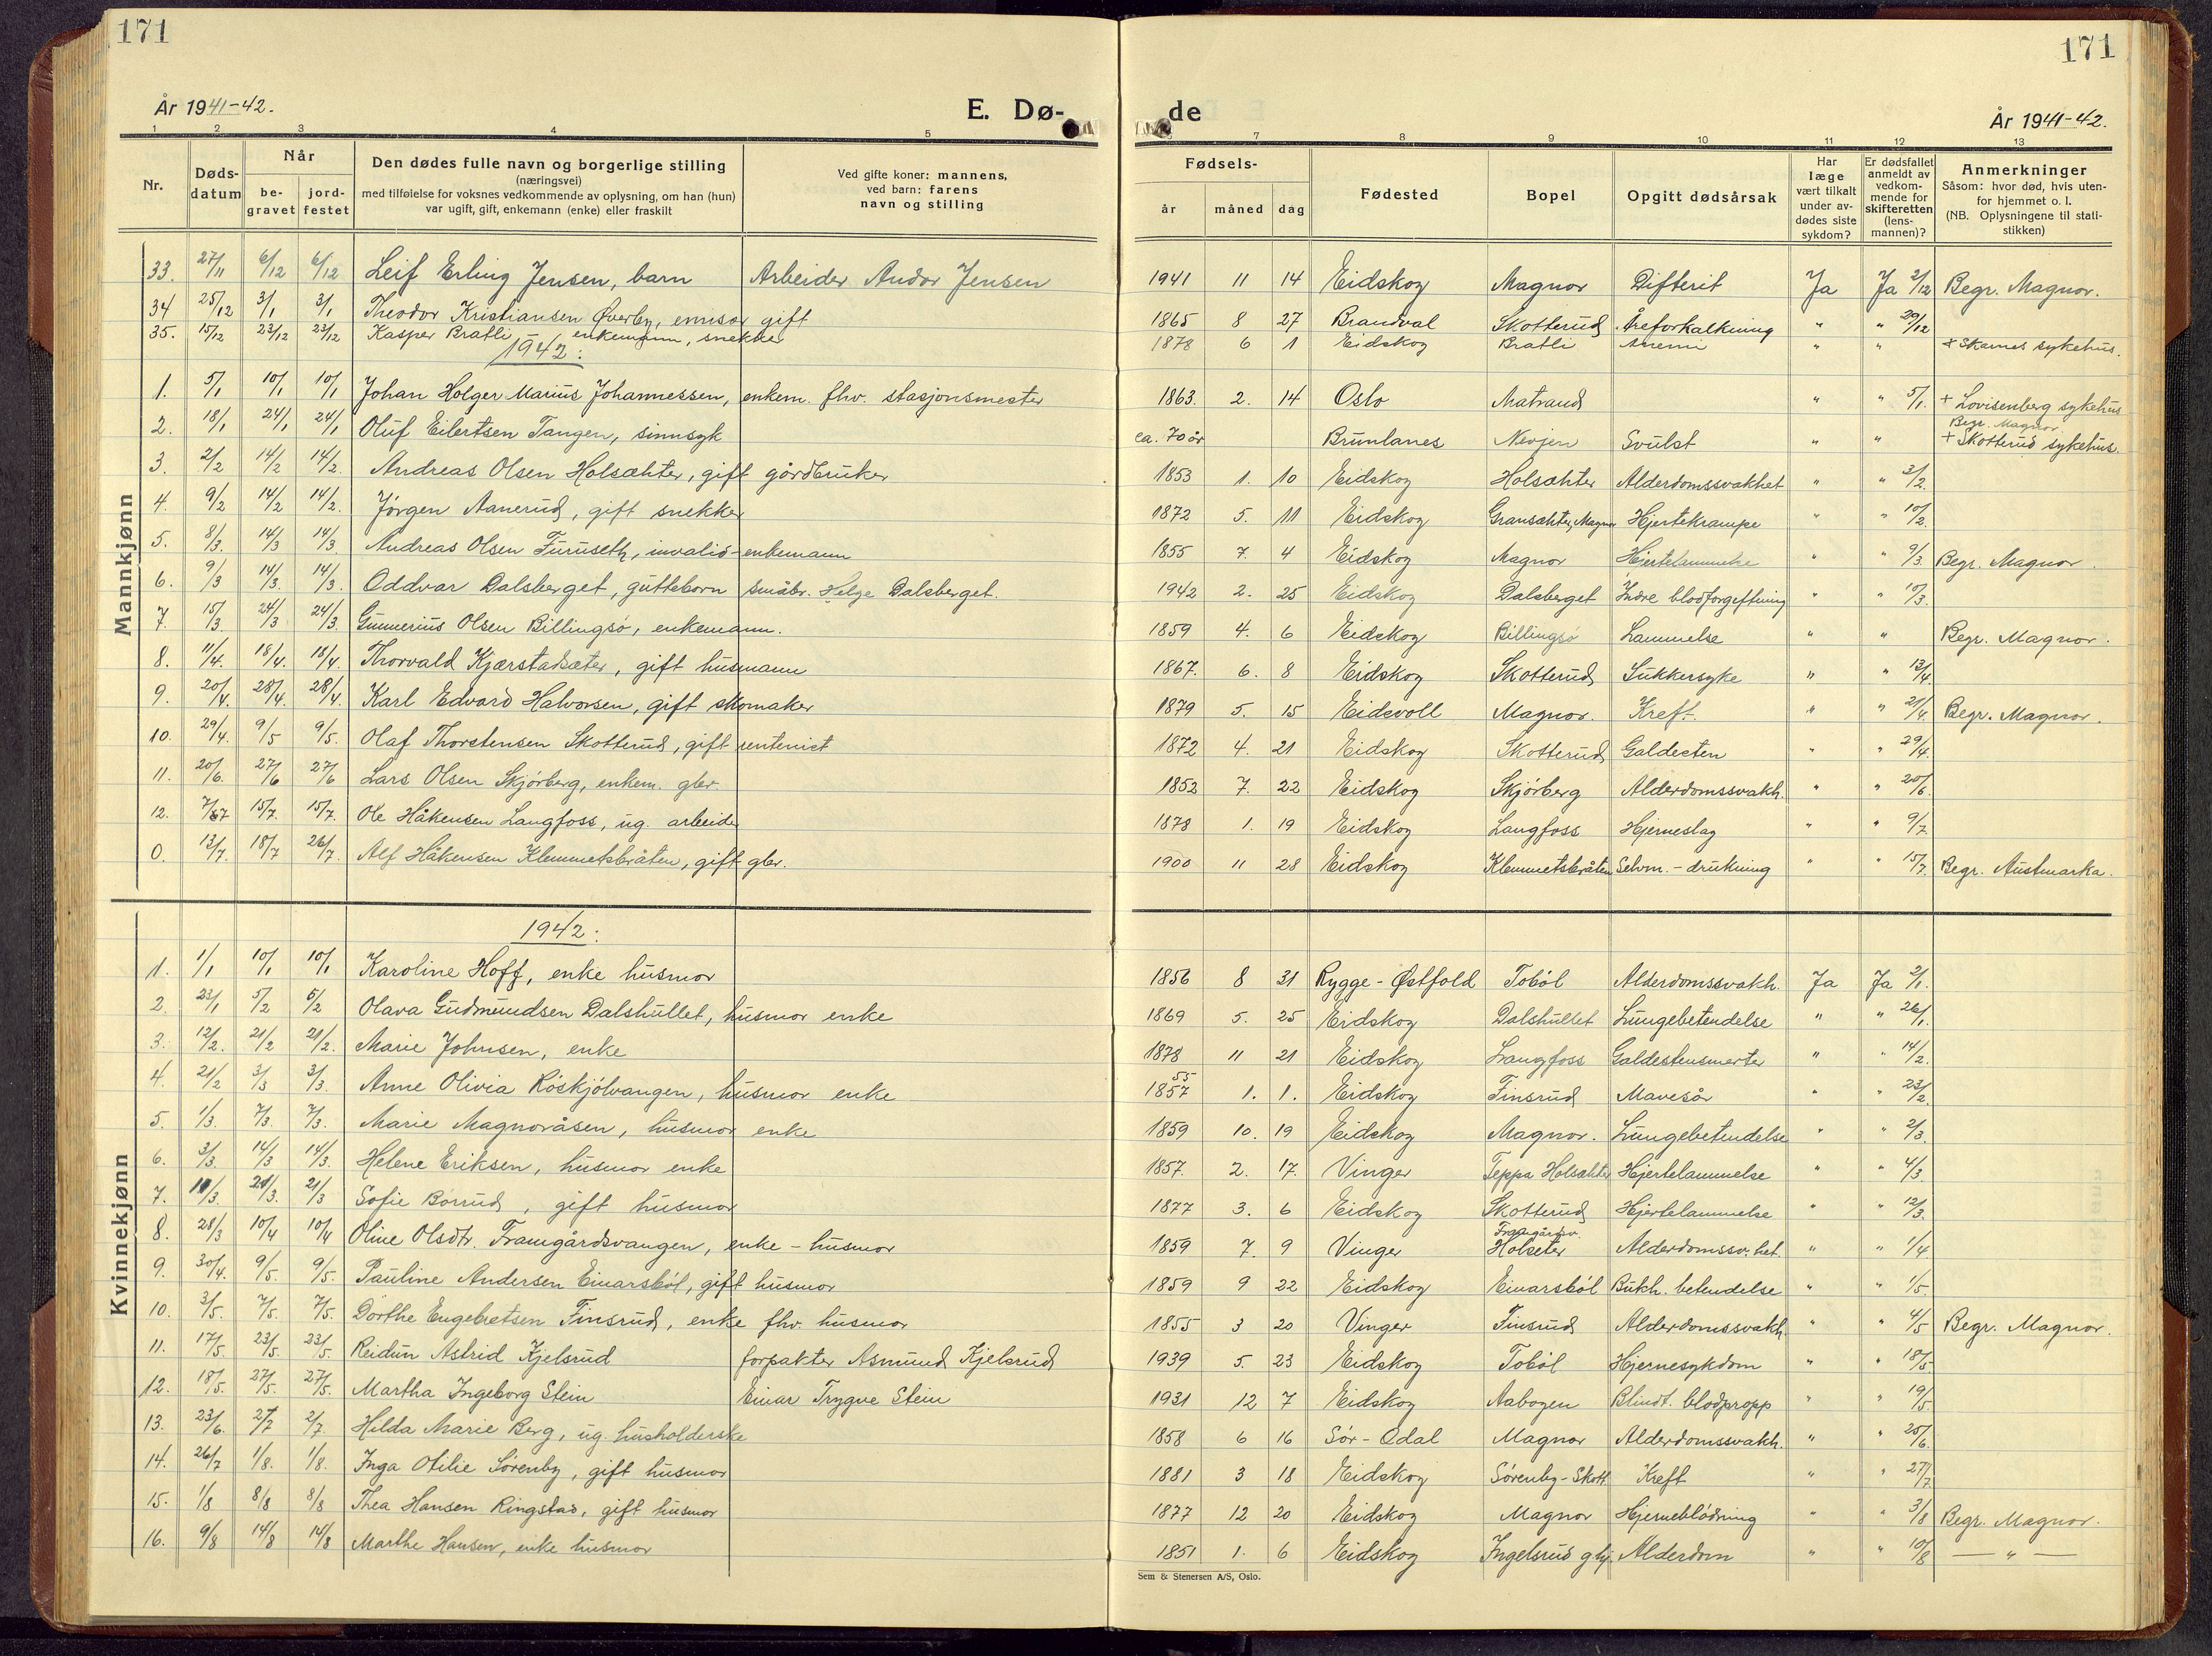 171
171
År 1941-42.
E. Dø-
de
År 1941-42.
1 2 3 4 5 7 8 9 10 11 12 13
Nr.
Døds-
datum
Når
be-
gravet
jord-
festet
Den dødes fulle navn og borgerlige stilling
(næringsvei)
med tilføielse for voksnes vedkommende av oplysning, om han (hun)
var ugift, gift, enkemann (enke) eller fraskilt
Ved gifte koner: mannens,
ved barn: farens
navn og stilling
Fødsels-
år måned dag
Fødested
Bopel
Opgitt dødsårsak
Har
læge
vært tilkalt
under av-
dødes siste
sykdom?
Er dødsfallet
anmeldt av
vedkom-
mende for
skifteretten
(lens-
mannen)?
Anmerkninger
Såsom: hvor død, hvis uten-
for hjemmet o. l.
(NB. Oplysningene til stati-
stikken)
Mannkjønn
33. 27/11 6/12 6/12 Leif Erling Jensen, barn Arbeider Andor Jensen 1941 11 14 Eidskog Magnor Difterit Ja Ja 2/12 Begr. Magnor.
34 25/12 3/1 3/1 Theodor Kristiansen Øverby, emisær gift 1865 8 27 Brandval Skotterud Åreforkalkning " " 29/12
35. 15/12 23/12 23/12 Kasper Bratli – enkemann, snekker 1878 6 1 Eidskog Bratli Anemi " " + Skarnes sykehus.
1942:
1. 5/1 10/1 10/1 Johan Holger Marius Johannessen, enkem. fhv. stasjonsmester 1863. 2. 14 Oslo Matrand " " 5/1. + Lovisenberg sykehus
Begr. Magnor.
2. 18/1 24/1 24/1 Oluf Eilertsen Tangen, sinnsyk ca. 70 år Brunlanes Nevjen Svulst " " + Skotterud sykehus.
3. 2/2 14/2 14/2. Andreas Olsen Holsæhter, gift gårdbruker 1853 1. 10 Eidskog Holsæhter Alderdomssvakhet " " 3/2.
4. 9/2 14/2 14/2. Jørgen Aanerud, gift snekker 1872 5. 11 Eidskog Gransæhter, Magnor Hjertekrampe " " 10/2.
5. 8/3. 14/3 14/3. Andreas Olsen Furuseth, invalid-enkemann 1855 7. 4 Eidskog Magnor Hjertelammelse " " 9/3. Begr. Magnor.
6. 9/3 14/3. 14/3. Oddvar Dalsberget, guttebarn småbr. Helge Dalsberget. 1942 2. 25 Eidskog Dalsberget Indre blodforgiftning " " 10/3.
7. 15/3. 24/3 24/3. Gunnerius Olsen Billingsø, enkemann. 1859 4. 6 Eidskog Billingsø Lammelse " " Begr. Magnor.
8. 11/4. 18/4. 18/4. Thorvald Kjærstadsæter, gift husmann 1867. 6. 8 Eidskog Skotterud Sukkersyke " " 13/4.
9. 20/4. 28/4. 28/4. Karl Edvard Halvorsen, gift skomaker 1879 5. 15 Eidsvoll Magnor. Kreft. " " 21/4. Begr. Magnor.
10. 29/4. 9/5 9/5. Olaf Thorstensen Skotterud, gift rentenist 1872 4. 21 Eidskog Skotterud Galdesten " " 29/4.
11. 20/6. 27/6 27/6 Lars Olsen Skjørberg, enkem. gbr. 1852 7. 22 Eidskog Skjørberg Alderdomssvakh. " " 20/6.
12. 7/7 15/7. 15/7. Ole Håkensen Langfoss, ug. arbeider 1878 1. 19 Eidskog Langfoss Hjerneslag " " 9/7
0. 13/7. 18/7 26/7. Alf Håkensen Klemmetsbråten, gift gbr. 1900 11 28 Eidskog Klemmetsbråten Selvm. – drukning " " 15/7. Begr. Austmarka.
Kvinnekjønn
1942:
1. 1/1 10/1 10/1 Karoline Hoff, enke husmor 1856 8 31 Rygge - Østfold Tobøl Alderdomssvakh. Ja Ja 2/1.
2. 23/1 5/2 5/2 Olava Gudmundsen Dalshullet, husmor enke 1869 5. 25 Eidskog Dalshullet Lungebetendelse " " 26/1.
3. 12/2. 21/2 21/2. Marie Johnsen, enke 1878 11 21 Eidskog Langfoss Galdestensmerter " " 14/2.
4. 21/2 3/3 3/3. Anne Olivia Röskjölvangen, husmor enke 55 1857 1. 1. Eidskog Finsrud Mavesår " " 23/2.
5. 1/3. 7/3. 7/3. Marie Magnoråsen, husmor enke 1859 10. 19 Eidskog Magnor. Lungebetendelse " " 2/3.
6. 3/3. 14/3 14/3. Helene Eriksen, husmor enke 1857. 2. 17. Vinger Teppa Holsæhter Hjertelammelse " " 4/3.
7. 10/3. 21/3. 21/3 Sofie Borrud, gift husmor 1877 3. 6 Eidskog Skotterud Hjertelammelse " " 12/3.
8. 28/3 10/4 10/4 Oline Olsdtr. Framgårdsvangen, enke – husmor 1859 7. 9 Vinger Framgårdsv. Holseter Alderdomssv.het. " " 1/4
9. 30/4. 9/5. 9/5. Pauline Andersen Einarsbøl, gift husmor 1859 9 22 Eidskog Einarsbøl Bukh. betendelse " " 1/5.
10. 3/5. 7/5. 7/5. Dorthe Engebretsen Finsrud, enke fhv. husmor 1855 3 20 Vinger Finsrud Alderdomssvakh. " " 4/5 Begr. Magnor.
11. 17/5 23/5. 23/5. Reidun Astrid Kjelsrud forpakter Asmund Kjelsrud 1939 5. 23 Eidskog Tobøl Hjernesykdom " " 18/5.
12. 18/5. 27/5. 27/5. Martha Ingeborg Stein Einar Trygve Stein 1931 12 7 Eidskog Aabogen Blindt. blodpropp " " 19/5.
13. 23/6. 2/7 2/7. Hilda Marie Berg, ug. husholderske 1858 6 16 Sør - Odal Magnor Alderdomssvakh. " " 25/6.
14. 26/7 1/8. 1/8. Inga Otilie Sørenby, gift husmor 1881 3 18 Eidskog Sørenby - Skott. Kreft " " 27/7.
15. 1/8 8/8 8/8 Thea Hansen Ringstad, gift husmor 1877 12 20 Eidskog Magnor Hjerneblödning " " 3/8 Begr. Magnor.
16. 9/8 14/8 14/8 Marthe Hansen, enke husmor 1851 1. 6 Eidskog Ingelsrud glhj. Alderdom " " 10/8 — " —
Sem & Stenersen A/S, Oslo.